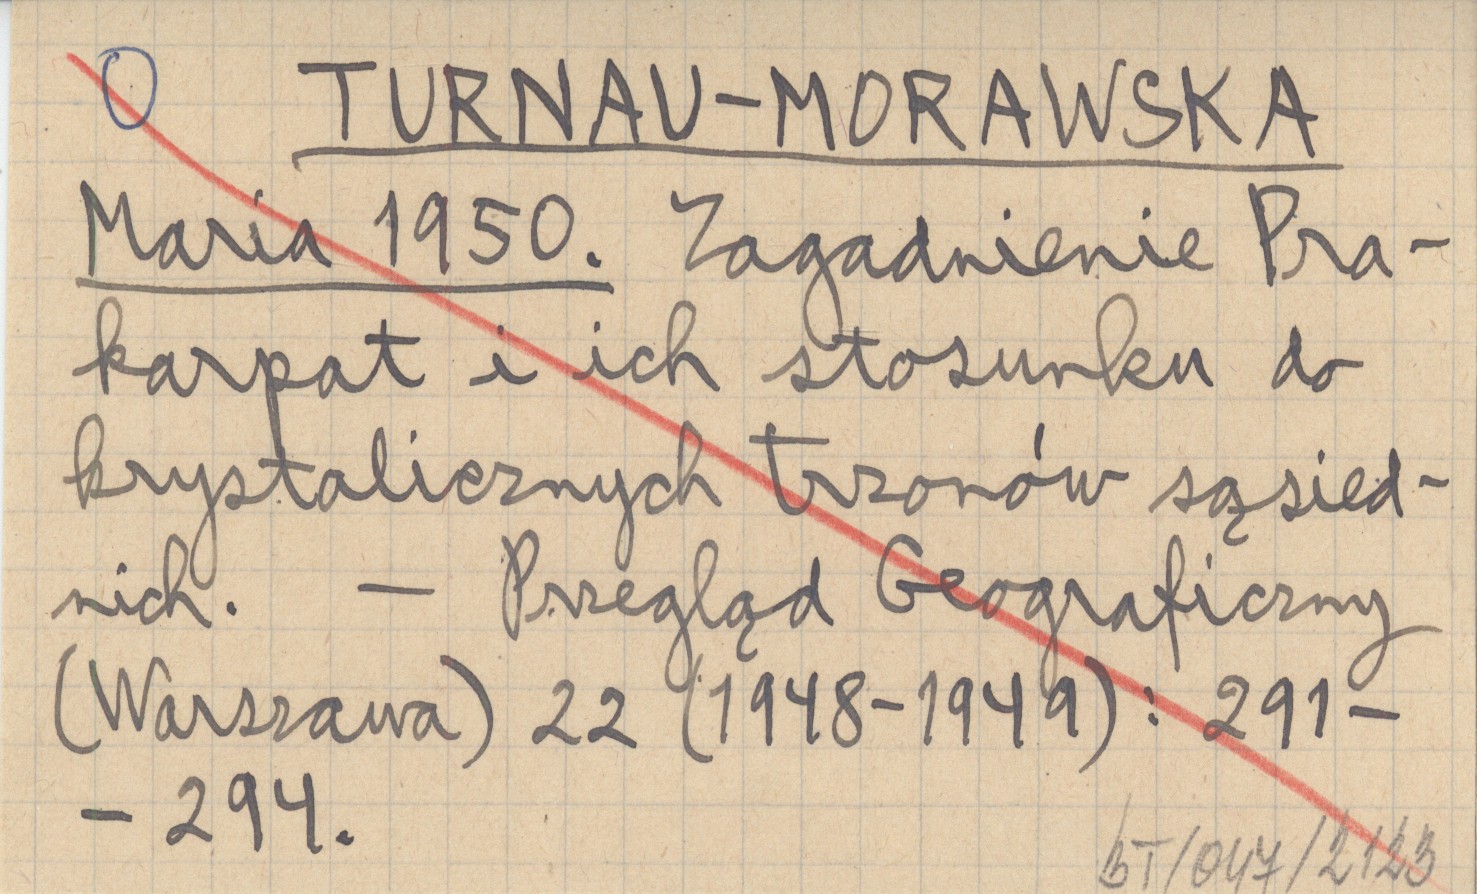 O TURNAU-MORAWSKA
Maria 1950. Zagadnienie Pra-
karpat i ich stosunku do
krystalicznych trzonów sąsied-
nich. — Przegląd Geograficzny
(Warszawa) 22 (1948-1949): 291-
- 294.
BT/047/2123